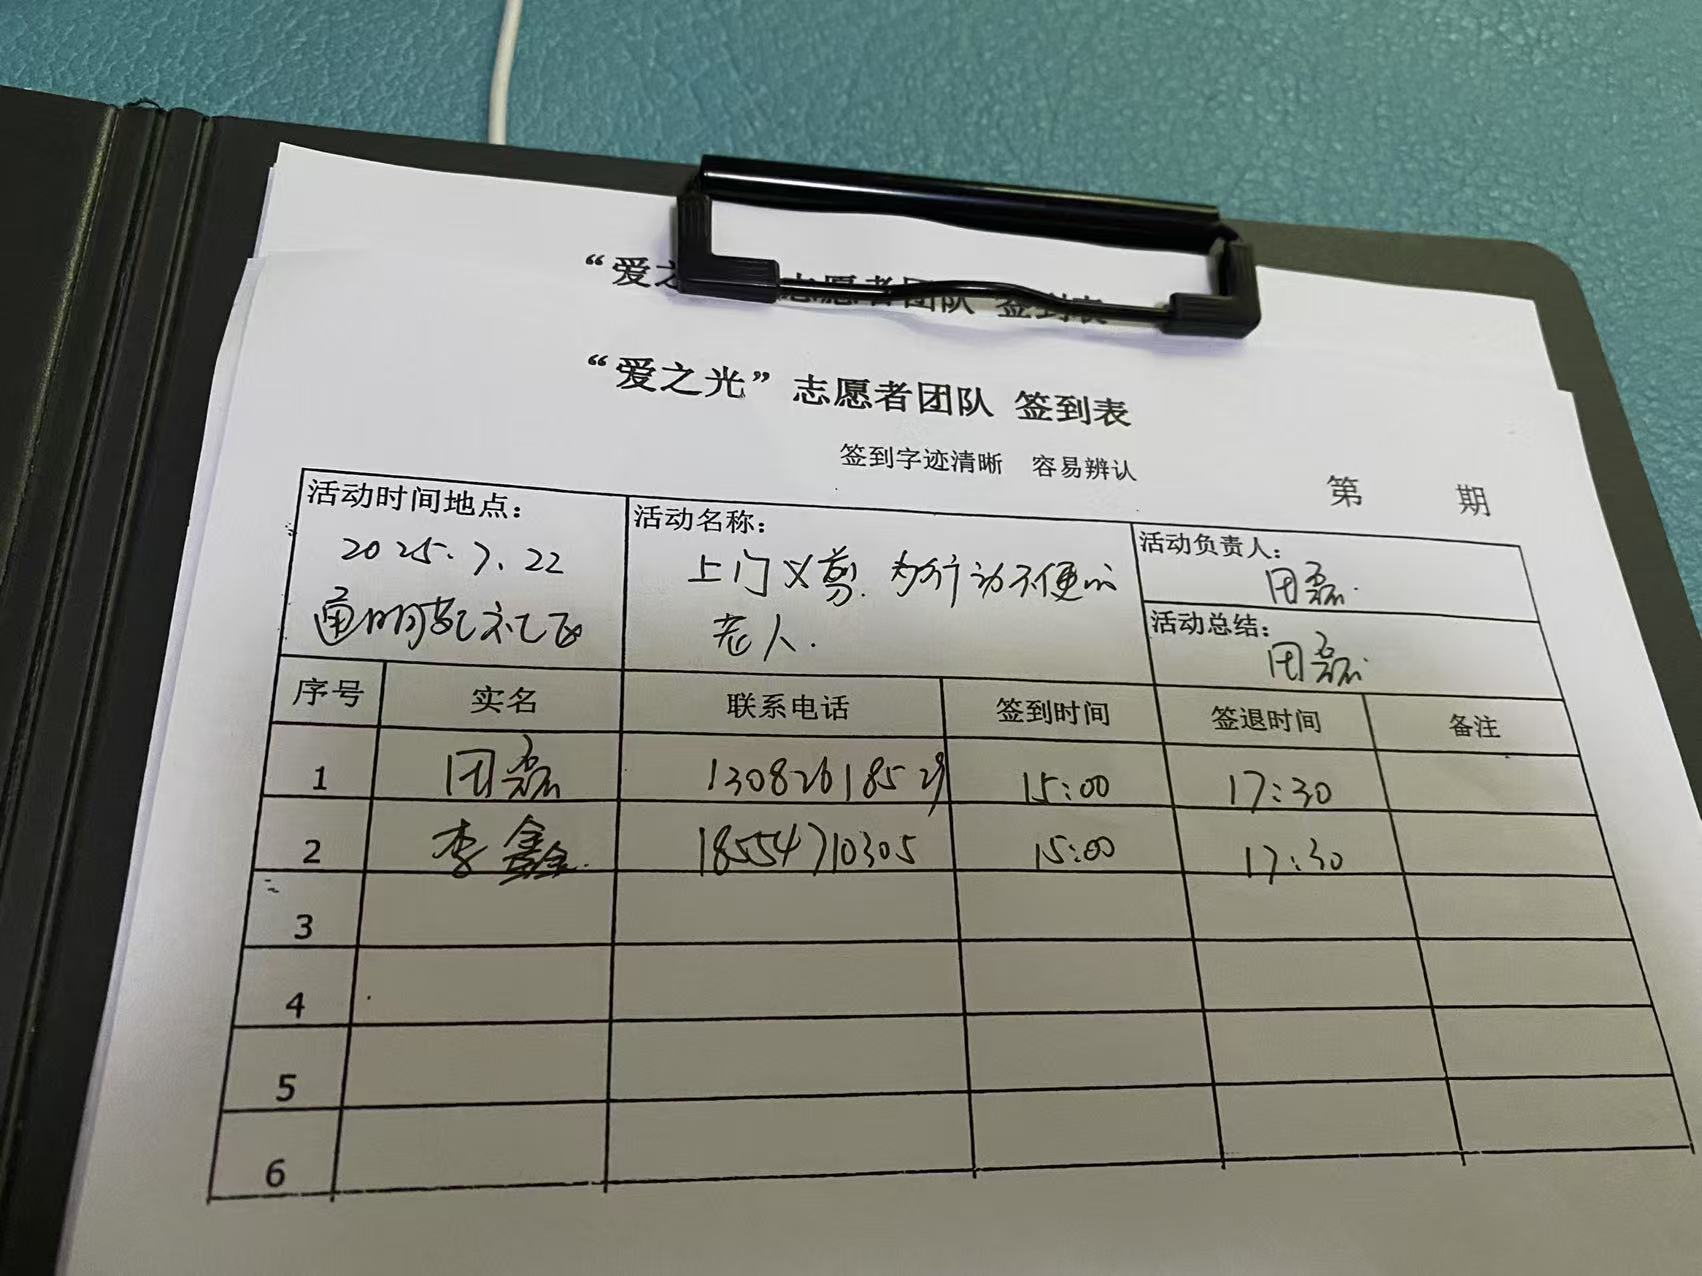 “爱之 志愿者团队 签到表
“爱之光”志愿者团队 签到表
签到字迹清晰 容易辨认
第 期
活动时间地点：
2025.7.22
活动名称：
上门义剪.为行动不便的
老人.
活动负责人：
活动总结：
序号 实名 联系电话 签到时间 签退时间 备注
1 15:00 17:30
2 李鑫 18554710305 15:00 17:30
3
4
5
6